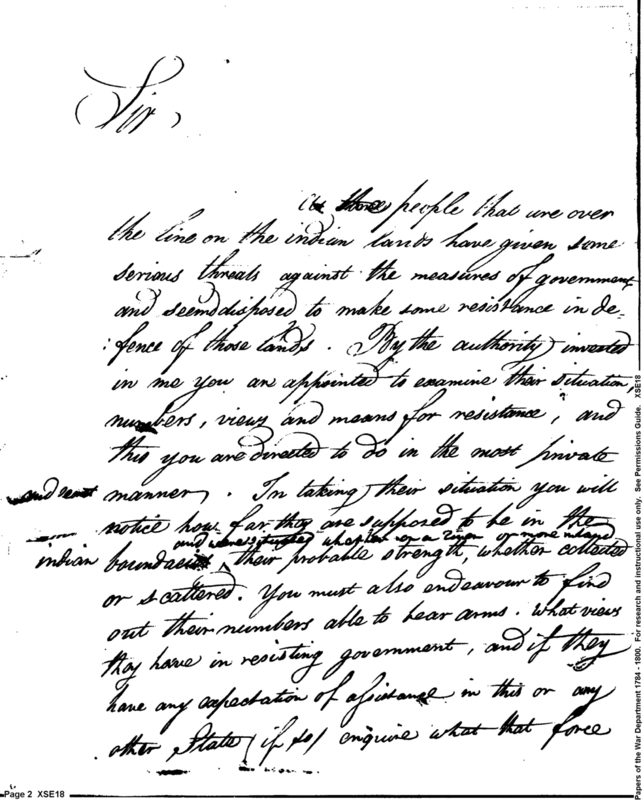 Sir
As those people that are over
the line on the indian lands have given some
serious threats against the measures of government
and seems disposed to make some resistance in de-
fence of those lands. By the authority invested
in me you are appointed to examine their situation,
numbers, views and means for resistance, and
this you are directed to do in the most private
and secret manner. In taking their situation you will
notice how far they are supposed to be in the
and where situated whether on a River or more inland
indian boundaries, their probable strength, whether collected
or scattered. You must also endeavour to find
out their numbers able to bear arms. What views
they have in resisting government, and if they
have any expectation of assistance in this or any
other State (if so) enquire what that force
Page 2 XSE18
Papers of the War Department 1784 - 1800. For research and instructional use only. See Permissions Guide. XSE18